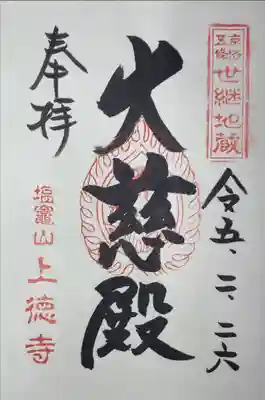 京都
五條
世継地蔵
令五、二、二六
大慈殿
奉拝
塩竈山
上徳寺